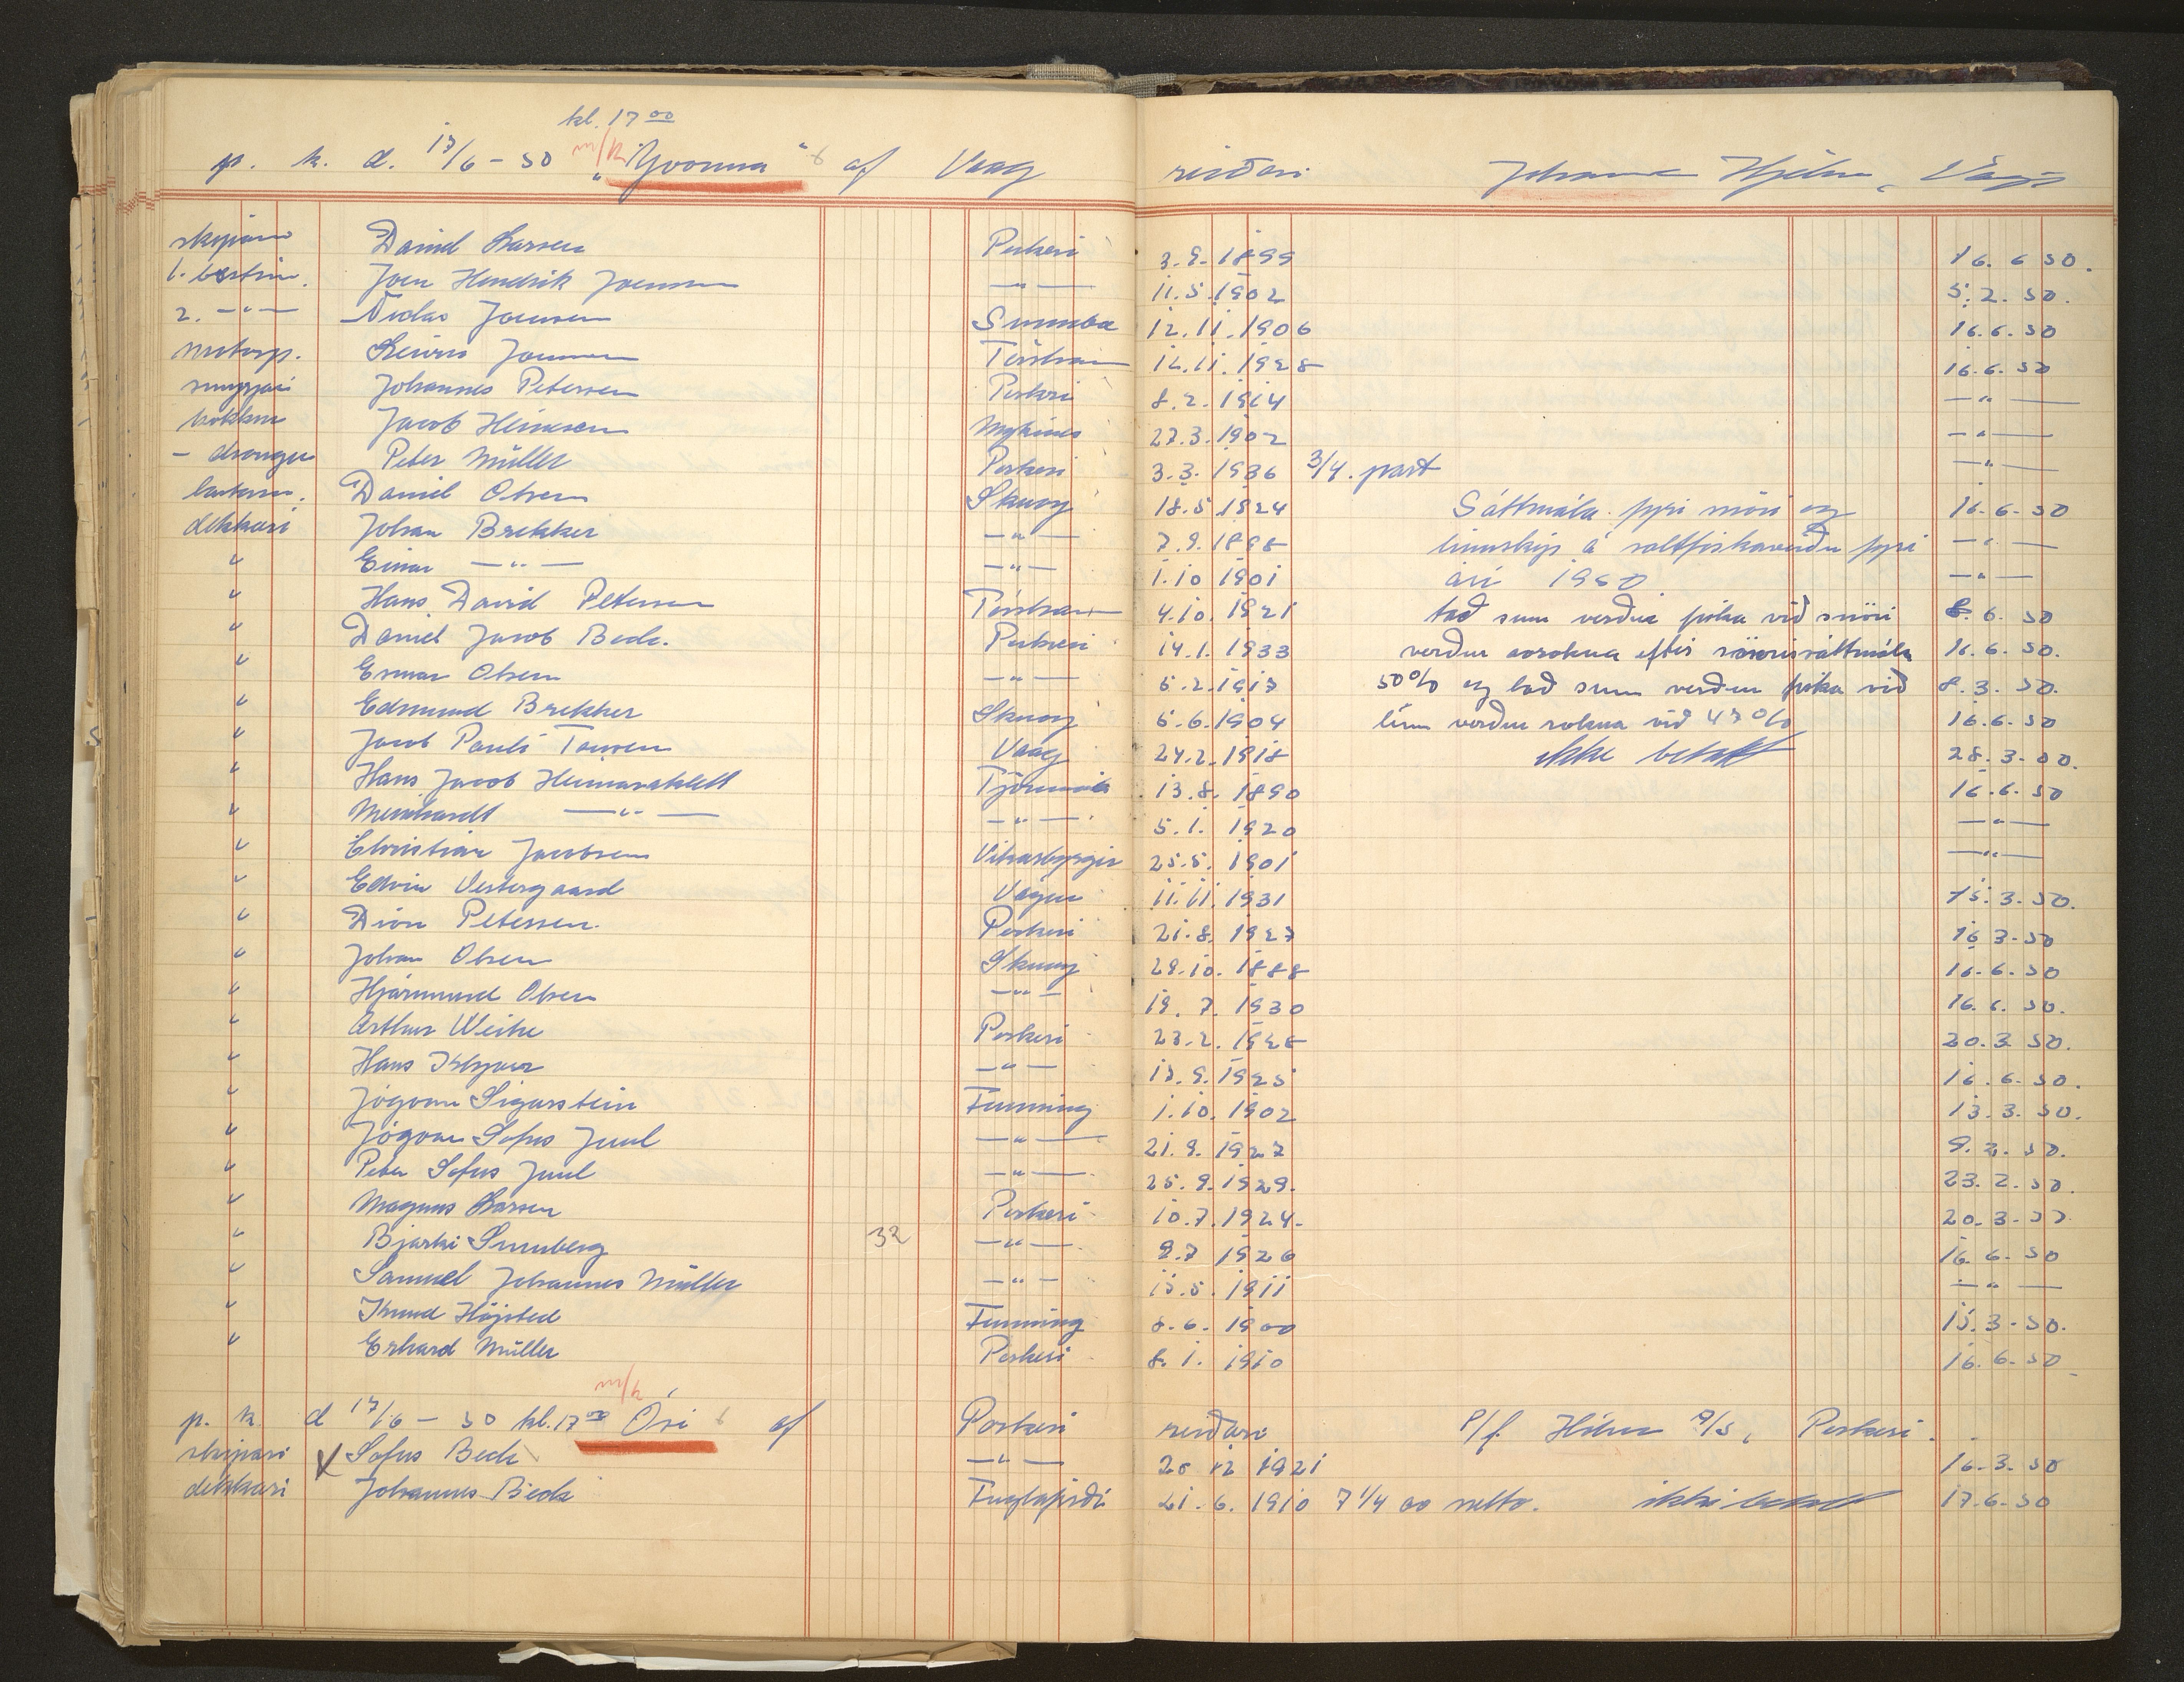 kl. 17 00
p. k. d. 17/6 - 50 m/k "Yvonna" af Vaag reiðari Hjelm, Vági
skipari Daniel Larsen Porkeri 3.9.1899 16.6 50.
1. bestim. Joen Hendrik Joensen —"— 11.5.1902 5.2.50.
2. —"— Niclas Joensen Sumba 12.11.1906 16.6.50
motorp. Joensen Tórshavn 12.11.1928 16.6.50
smyrjari Johannes Petersen Porkeri 8.2.1914 —"—
kokkur Jacob Heinesen Mykines 27.3.1902 —"—
- drongur Peter Müller Porkeri 3.3.1936 3/4. part —"—
Daniel Olsen Skuvoy 18.5.1924 Sáttmála fyri snöri og 16.6.50
dekkari Johan Brekker —"— 7.9.1898 línuskip á saltfiskaveiðu fyri —"—
" Einar —"— —"— 1.10 1901 ári 1950 —"—
" Hans David Petersen Tórshavn 4.10.1921 tað sum verður fiska við snöri 8.6.50
" Daniel Jacob Beck. Porkeri 14.1.1933 verður avroknað eftir snörisáttmála 16.6.50.
" Esmar Olsen —"— 5.2.1917 50% og tað sum verður fiska við 8.3.50.
" Edmund Brekker Skuvoy 6.6.1904 línu verður roknað við 47% 16.6.50
" Jacob Pauli Toursen Vaag 24.2.1918 ikki betalt 28.3.00.
" Hans Jacob Heimaraklett Tjörnuvík 13.8.1890 16.6.50
" Meinhardt —"— —"— 5.1.1920 —"—
" Christian Jacobsen Vikarbyrgir 25.5.1901 —"—
" Edvin Vestergaard Vágur 11.11.1931 15.3.50.
" Dion Petersen. Porkeri 21.8.1927 16 3.50
" Johan Olsen Skuvoy 29.10.1888 16.6.50
" Hjármund Olsen —"— 19.7.1930 16.6.50.
" Arthur Weihe Porkeri 23.2.1928 20.3 50.
" Hans —"— 17.9.1925 16.6.50.
" Jógvan Sigurstein Funning 1.10.1902 13.3.50.
" Jógvan Sofus Juul —"— 21.9.1927 9.3.50.
" Peter Sofus Juul —"— 25.9.1929. 23.2.50.
" Magnus Larsen Porkeri 10.7.1924. 20.3.50
" Bjarki Sumberg 32 —"— 9.7 1926 16.6.50
" Samuel Johannes Müller —"— 15.5.1911 —"—
" Knud Højsted Funning 6.6.1900 15.3.50.
" Erhard Müller Porkeri 8.1.1910 16.6.50
m/k
p. k. d 17/6 - 50 kl. 17 00 Ósi af Porkeri reiðari P/f. Hilmir A/S, Porkeri.
skipari X Sofus Beck —"— 20 12 1921 16.3.50
dekkari Johannes Beck Fuglafirði 21.6.1910 7 1/4 oo netto. ikki betalt 17.6.50